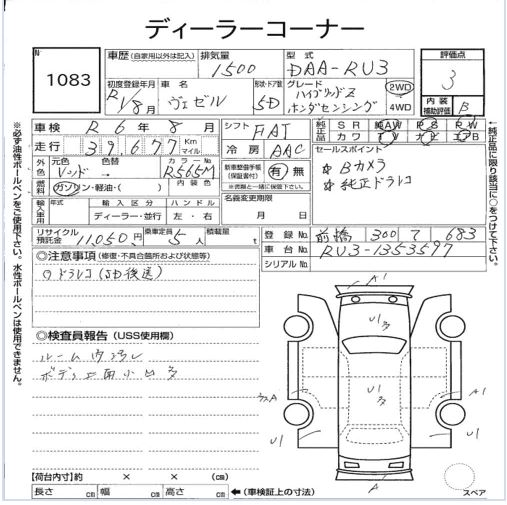 ディーラーコーナー
No 1083
車歴 (自家用以外は記入)
排気量 1500
型式 DAA-RU3
評価点 3
初度登録年月 R1/8月
車名 ヴェゼル
形状・ドア数 5D
グレード ハイブリッドZ ホンダセンシング
2WD
4WD
内装補助評価 B
車検 R6年8月
シフト FAT
純正品 SR AW PS
カワ TV ナビ エアB
走行 39,677 Km マイル
冷房 AAC
セールスポイント
Bカメラ
純正ドラレコ
外色 元色 レッド 色替 カラーNo R565M
内装色
燃料 ガソリン・軽油・( )
新車整備手帳(保証書付) 有 無
※書類と一緒に保管下さい。
輸入車用 年式 輸入区分 ハンドル
ディーラー・並行 左・右
名義変更期限
月 日
リサイクル預託金 11,050円
乗車定員 5人
積載量 t
登録No. 前橋 300 683
車台No. RU3-1353597
シリアルNo.
◎注意事項(修復・不具合箇所および状態等)
ドラレコ(SD後送)
◎検査員報告 (USS使用欄)
ルーム内
小キズ
A1
U1
U1
U1
A1
U1
U1
A
スペア
【荷台内寸】約 × × (cm)
長さ cm 幅 cm 高さ cm ←(車検証上の寸法)
※必ず油性ボールペンをご使用下さい。水性ボールペンは使用できません。
←純正品に限り該当に○をつけて下さい。